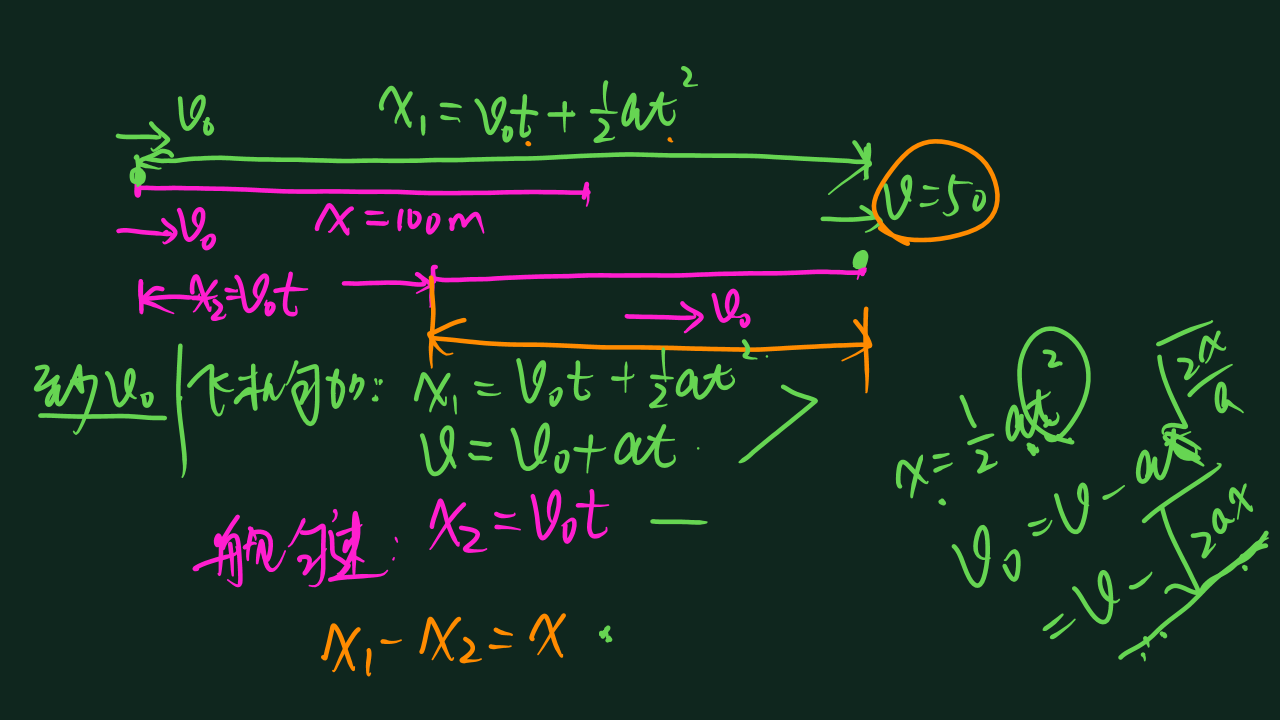 x₁ = v₀t + ½at²
v₀
v = 50
x = 100m
v₀
x₂ = v₀t
v₀
v₀ 飞机匀加: x₁ = v₀t + ½at²
v = v₀ + at
舰匀速: x₂ = v₀t
x₁ - x₂ = x
x = ½at²
√(2x/a)
v₀ = v - at
= v - √(2ax)